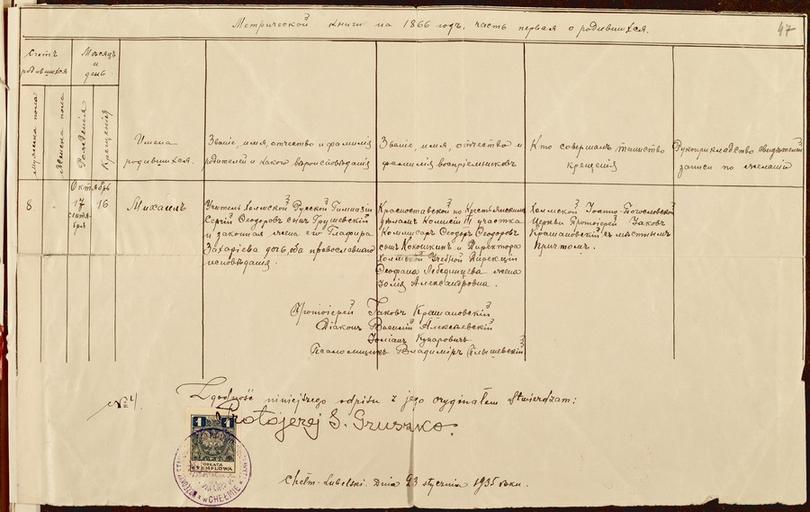 Метрической книги на 1866 годъ, часть первая о родившихся.
47
Счетъ родившихся
Мѣсяцъ и день
мужска пола
женска пола
Рожденія
Крещенія
Имена родившихся.
Званіе, имя, отчество и фамилія
родителей и какого вѣроисповѣданія
Званіе, имя, отчество и
фамилія воспріемниковъ
Кто совершалъ таинство
крещенія
Рукоприкладство свидѣтелей
записи по желанію
Октябрь
8
-
17
сентября
16
Михаилъ
Учитель Холмской Русской Гимназіи
Сергій Ѳеодоровъ сынъ Грушевскій
и законная жена его Глафира
Захаріева дочь, оба православнаго
исповѣданія.
Красноставской по Крестьянскимъ
дѣламъ Комисіи III участка
Комисаръ Ѳеодоръ Ѳеодоровъ
сынъ Кокошкинъ и Директора
Холмской Учебной Дирекціи
Ѳеофана Лебединцева жена
Юлія Александровна.
Холмской Іоанно-Богословской
Церкви Протоіерей Іаковъ
Крашановскій съ мѣстнымъ
Причтомъ.
Протоіерей Іаковъ Крашановскій
Діаконъ Василій Алексѣевскій
Іоміанъ Кухаровичъ
Псаломщикъ Владиміръ
№ 4.
Zgodność niniejszego odpisu z jego oryginałem stwierdzam:
Protojerej S. Gruszko.
1 1
OPŁATA
STEMPLOWA
W CHEŁMIE
Chełm-Lubelski. Dnia 23 stycznia 1935 roku.